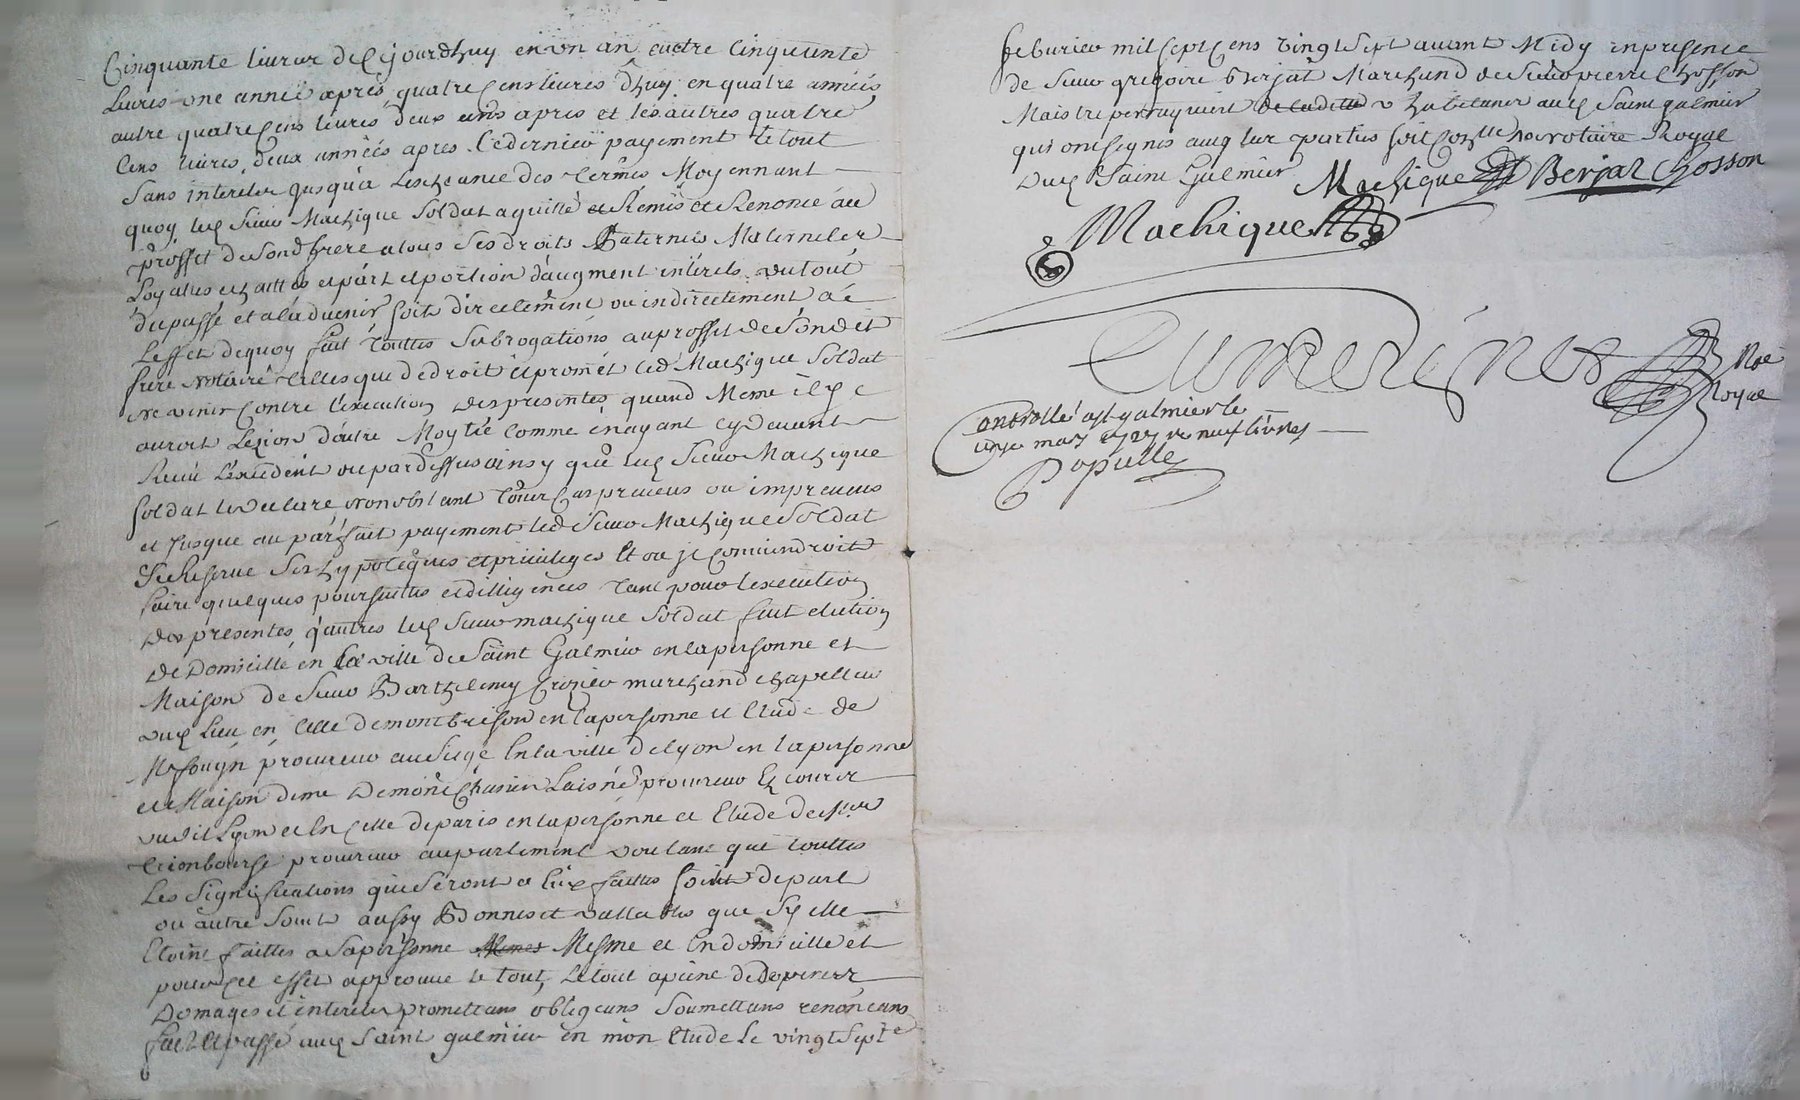 Cinquante livres de cejourdhuy en un an autre Cinquante
livres une année après quatre cens livres dhuy en quatre années
autre quatre cens livres deux ans apres et les autres quatre
Cens livres deux années apres le dernier payement le tout
Sans interest jusqu'a l'escheance des termes Moyennant
quoy led Sieur Machique Soldat a quitté et Remis et Renoncé au
proffit de Son frere a tous Ses droits Paternels Maternels
et part et portion d'augment interets du tout
du passé et a l'advenir soit directement ou indirectement a
l'effet de quoy fait touttes Subrogations au proffit de Sondit
frere Notaire telles que de droit et promet led Machique Soldat
ne venir contre l'execution des presentes quand Meme il y
auroit Lezion d'outre Moytié comme en ayant cydevant
Receu l'exedent ou pardessus ainsy que led Sieur Machique
Soldat le declare nonobstant tous cas preveus ou impreveus
et jusque au parfait payement led Sieur Machique Soldat
Se Reserve Ses hypoteques et privileges et ou il conviendroit
faire quelques poursuittes et dilligences tant pour l'execution
des presentes qu'autres led Sieur machique Soldat fait election
de Domicille en la ville de Saint Galmier en la personne et
Maison de Sieur Barthelemy Crozier marchand chapellier
dud Lieu en celle de montbrison en la personne et Etude de
procureur au Siege en la ville de lyon en la personne
et Maison de me Laisné procureur ez cours
dudit Lyon et en celle de paris en la personne et Etude de
procureur au parlement voulant que touttes
les Significations que Seront a luy faittes soit de part
ou autre Soint aussy Bonnes et vallables que Sy elle
Etoint faittes a Sa personne Mesme et en domicille et
pour cet effet approuve le tout, le tout a peine de
Domages et interets promettans obligeans Soumettans renonceans
fait et passé aud Saint galmier en mon Etude le vingt Sept
feburier mil sept cens vingt Sept avant Midy en presence
de Sieur gregoire Berjat Marchand de Sieur pierre Chosson
Maistre perruquier habitans aud Saint galmier
qui ont Signés avec les parties Notaire Royal
dud Saint Galmier Machique Berjat Chosson
Machique
Nre
Royal
Controllé a St galmier le
onze mars 1727 neuf livres
Populle